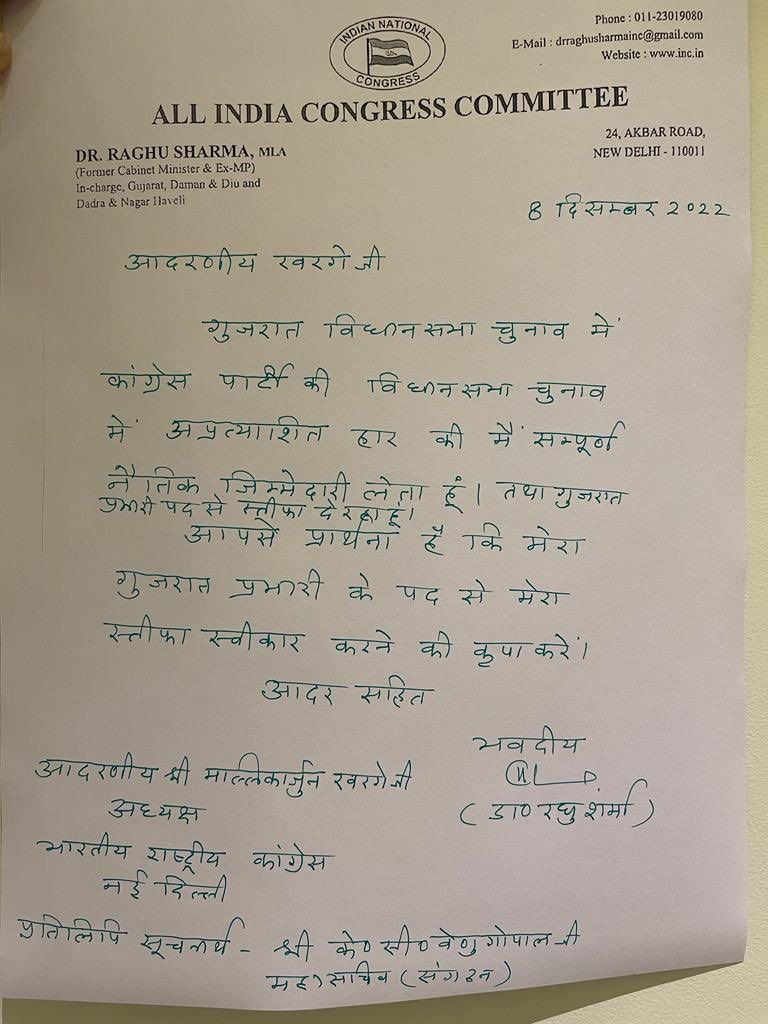 INDIAN NATIONAL
CONGRESS
Phone : 011-23019080
E-Mail : drraghusharmainc@gmail.com
Website : www.inc.in
ALL INDIA CONGRESS COMMITTEE
DR. RAGHU SHARMA, MLA
(Former Cabinet Minister & Ex-MP)
In-charge, Gujarat, Daman & Diu and
Dadra & Nagar Haveli
24, AKBAR ROAD,
NEW DELHI - 110011
8 दिसम्बर 2022
आदरणीय खरगे जी
गुजरात विधानसभा चुनाव में
कांग्रेस पार्टी की विधानसभा चुनाव
में अप्रत्याशित हार की मैं सम्पूर्ण
नैतिक जिम्मेदारी लेता हूं। तथा गुजरात
प्रभारी पद से स्तीफा दे रहा हूं।
आपसे प्रार्थना है कि मेरा
गुजरात प्रभारी के पद से मेरा
स्तीफा स्वीकार करने की कृपा करें।
आदर सहित
भवदीय
(डा० रघु शर्मा)
आदरणीय श्री मल्लिकार्जुन खरगे जी
अध्यक्ष
भारतीय राष्ट्रीय कांग्रेस
नई दिल्ली
प्रतिलिपि सूचनार्थ - श्री के० सी० वेणुगोपाल जी
महासचिव (संगठन)